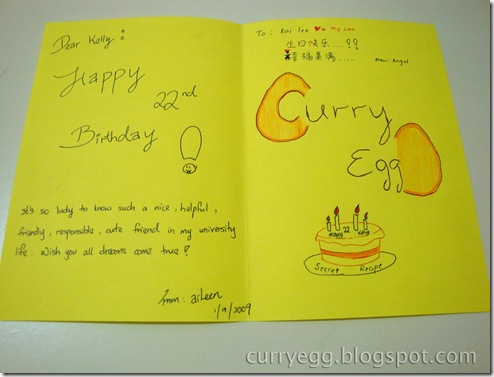 Dear Kelly :
Happy
22nd
Birthday !
It's so lucky to know such a nice, helpful,
friendly, responsible, cute friend in my university
life. Wish you all dreams come true !
From : aileen
1/9/2009
To : Kai lee ♥ My Love
生日快乐....!!
幸福美满....
From Angel
Curry
Egg
22
Happy
Secret Recipe
curryegg.blogspot.com